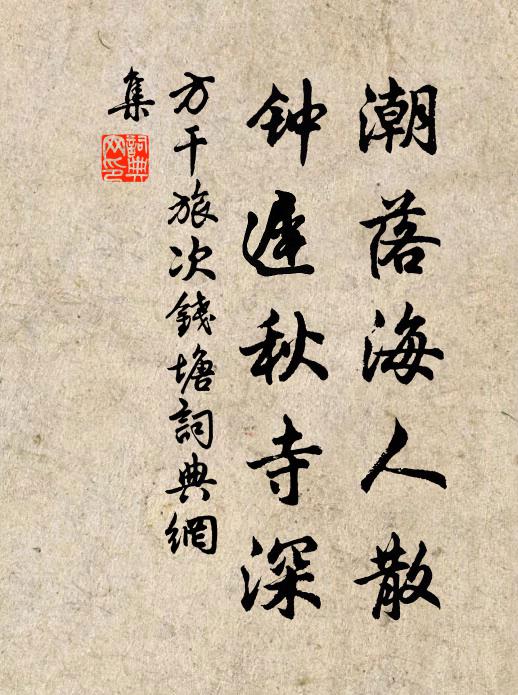 潮落海人散
钟迟秋寺深
方干旅次錢塘詞典網
集
詞典
网印